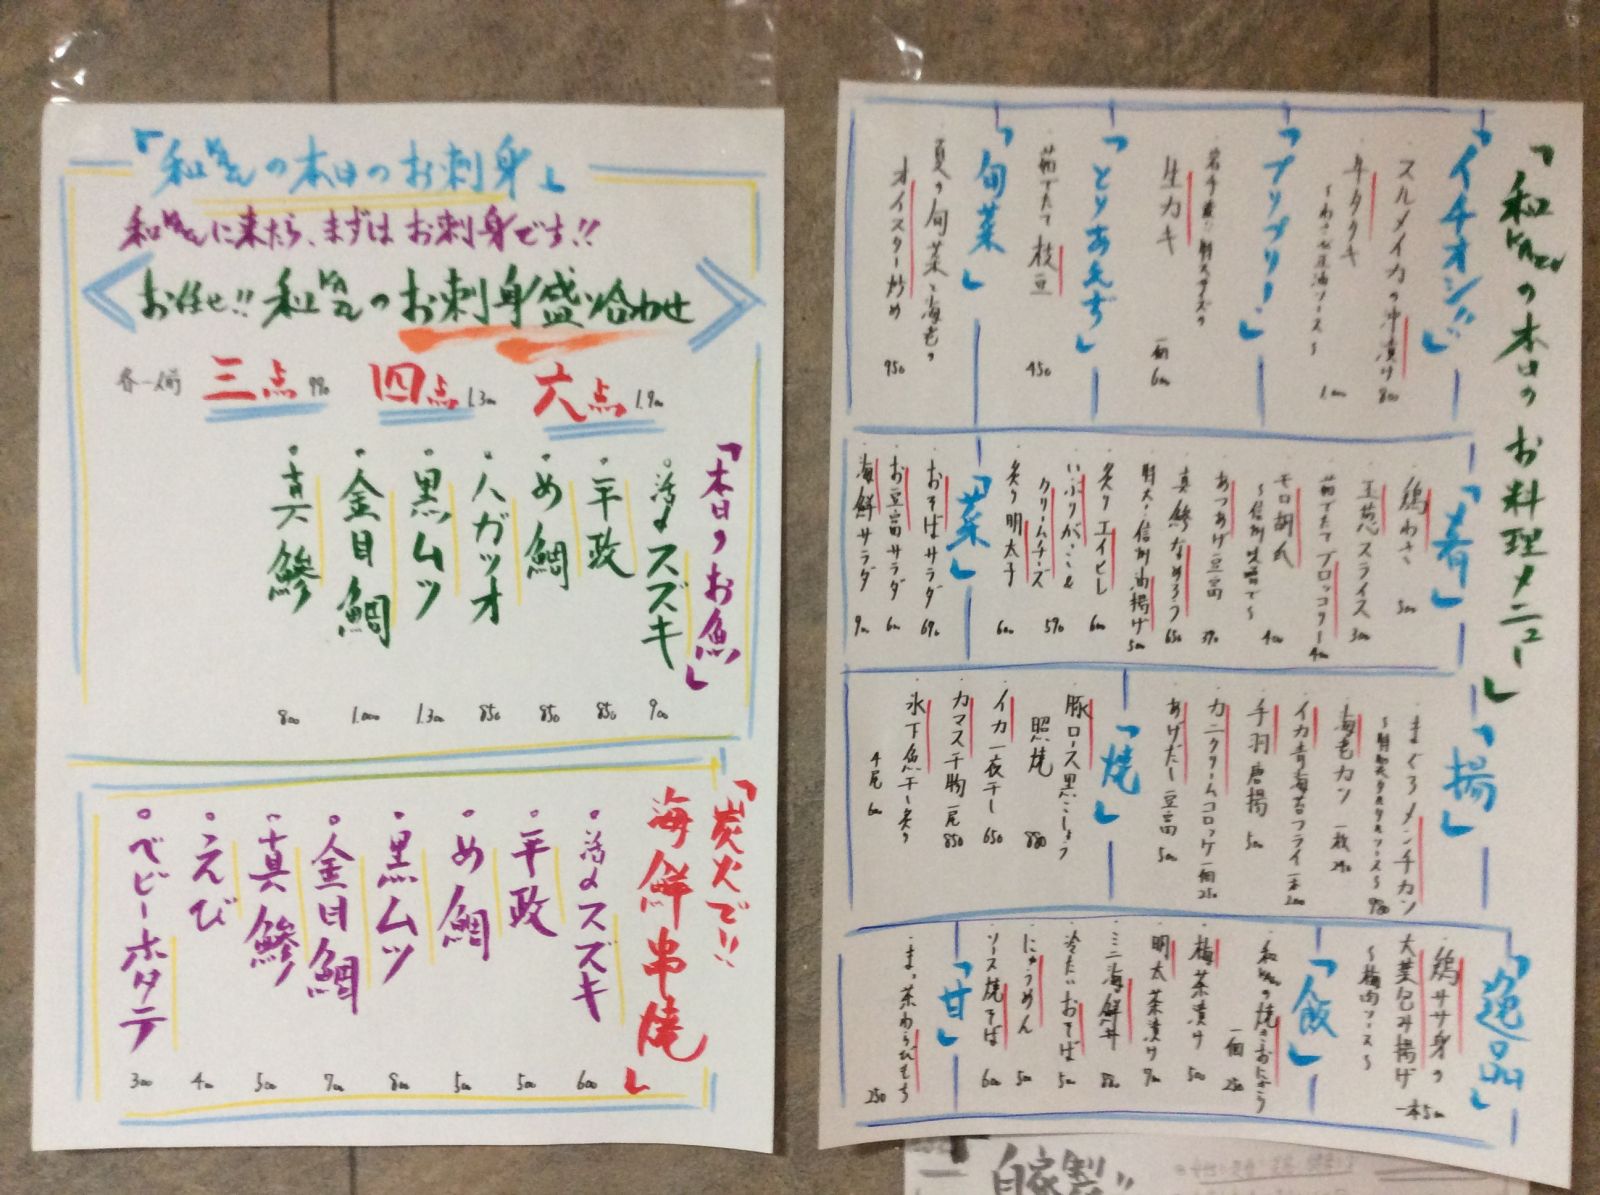 「和KAZUの本日のお刺身」
和KAZUに来たら、まずはお刺身です!!
お任せ!!和KAZUのお刺身盛り合わせ
各一人前 三点 990 四点 1.300 六点 1.900
「本日のお魚」
活〆スズキ 900
平政 850
め鯛 850
人ガツオ 850
黒ムツ 1.300
金目鯛 1.000
真鯵 800
「炭火で!!
海鮮串焼」
活〆スズキ 600
平政 500
め鯛 500
黒ムツ 800
金目鯛 700
真鯵 500
えび 400
ベビーホタテ 300
「和KAZUの本日のお料理メニュー」
「イチオシ!!」
スルメイカの沖漬け 800
牛タタキ
〜わさび正油ソース〜 1.000
「プリプリー」
岩手産!!特大サイズの
生カキ
一個 600
「とりあえず」
茹でたて枝豆 450
「旬菜」
夏の旬菜と海老の
オイスター炒め 950
「肴」
鶏わさ 500
玉葱スライス 300
茹でたてブロッコリー 400
モロ胡瓜
〜信州味噌で〜 400
あつあげ豆富 390
真鯵なめろう 650
特大!信州油揚げ 500
炙りエイヒレ 600
いぶりがっこ&
クリームチーズ 590
炙り明太子 600
「菜」
おそばサラダ 690
お豆富サラダ 600
海鮮サラダ 900
「揚」
まぐろメンチカツ
〜特製タルタルソース〜 980
海老カツ 一枚 290
イカ青海苔フライ 一本 200
手羽唐揚 500
カニクリームコロッケ 一個 250
あげだし豆富 500
「焼」
豚ロース黒こしょう
照焼 880
イカ一夜干し 650
カマス干物 一尾 850
氷下魚干し炙り
4尾 600
「逸品」
鶏ササ身の
大葉包み揚げ
〜梅肉ソース〜
一本 500
「飯」
和KAZUの焼きおにぎり
一個 250
梅茶漬け 500
明太茶漬け 700
ミニ海鮮丼 880
冷たいおそば 500
にゅうめん 500
ソース焼そば 600
「甘」
まっ茶わらびもち 250
自家製!!